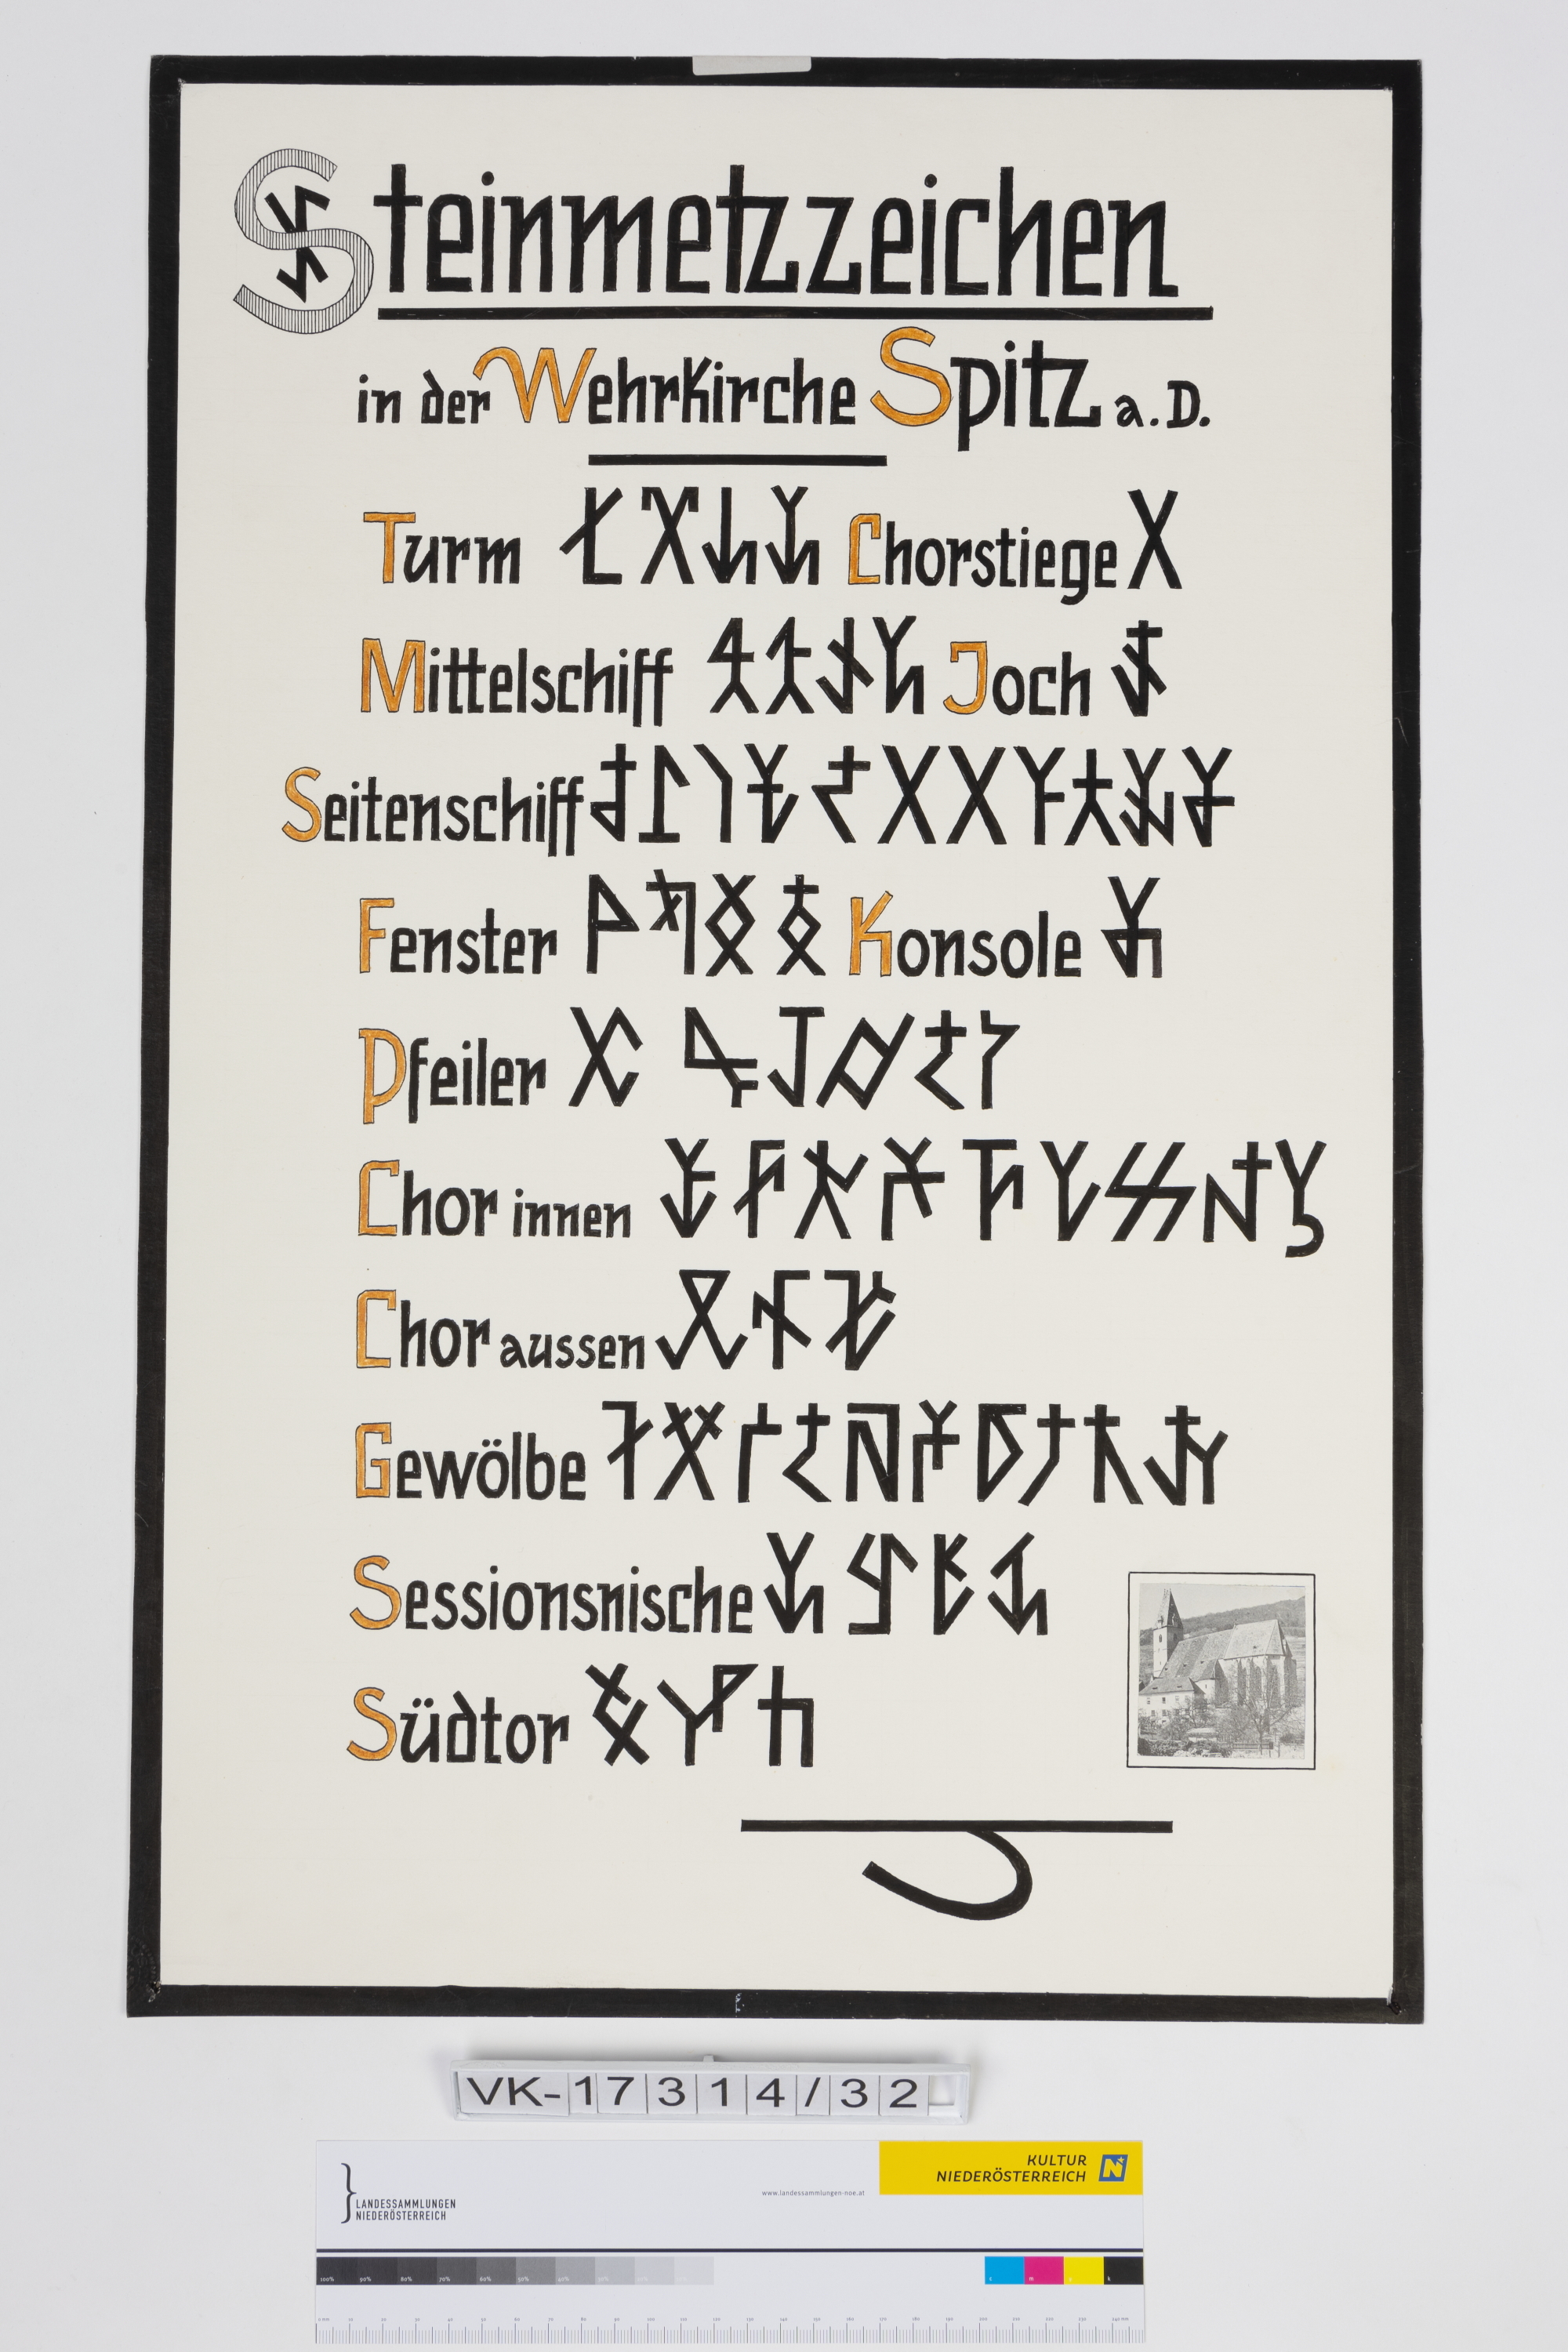 Steinmetzzeichen
in der Wehrkirche Spitz a.D.
Turm Chorstiege
Mittelschiff Joch
Seitenschiff
Fenster Konsole
Pfeiler
Chor innen
Chor aussen
Gewölbe
Sessionsnische
Südtor
VK-17314/32
KULTUR
NIEDERÖSTERREICH
www.landessammlungen-noe.at
LANDESSAMMLUNGEN
NIEDERÖSTERREICH